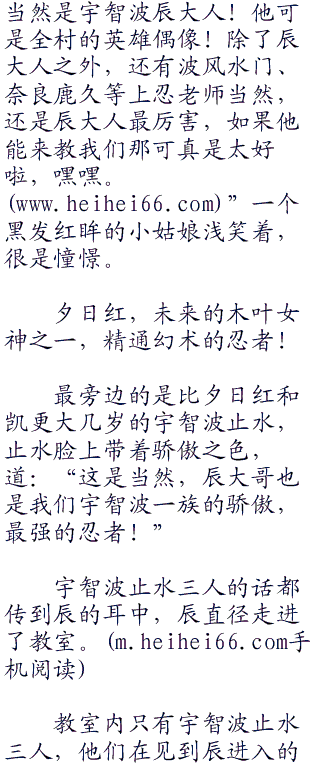 当然是宇智波辰大人！他可
是全村的英雄偶像！除了辰
大人之外，还有波风水门、
奈良鹿久等上忍老师当然，
还是辰大人最厉害，如果他
能来教我们那可真是太好
啦，嘿嘿。
(www.heihei66.com)”一个
黑发红眸的小姑娘浅笑着，
很是憧憬。
夕日红，未来的木叶女
神之一，精通幻术的忍者！
最旁边的是比夕日红和
凯更大几岁的宇智波止水，
止水脸上带着骄傲之色，
道：“这是当然，辰大哥也
是我们宇智波一族的骄傲，
最强的忍者！”
宇智波止水三人的话都
传到辰的耳中，辰直径走进
了教室。(m.heihei66.com手
机阅读)
教室内只有宇智波止水
三人，他们在见到辰进入的